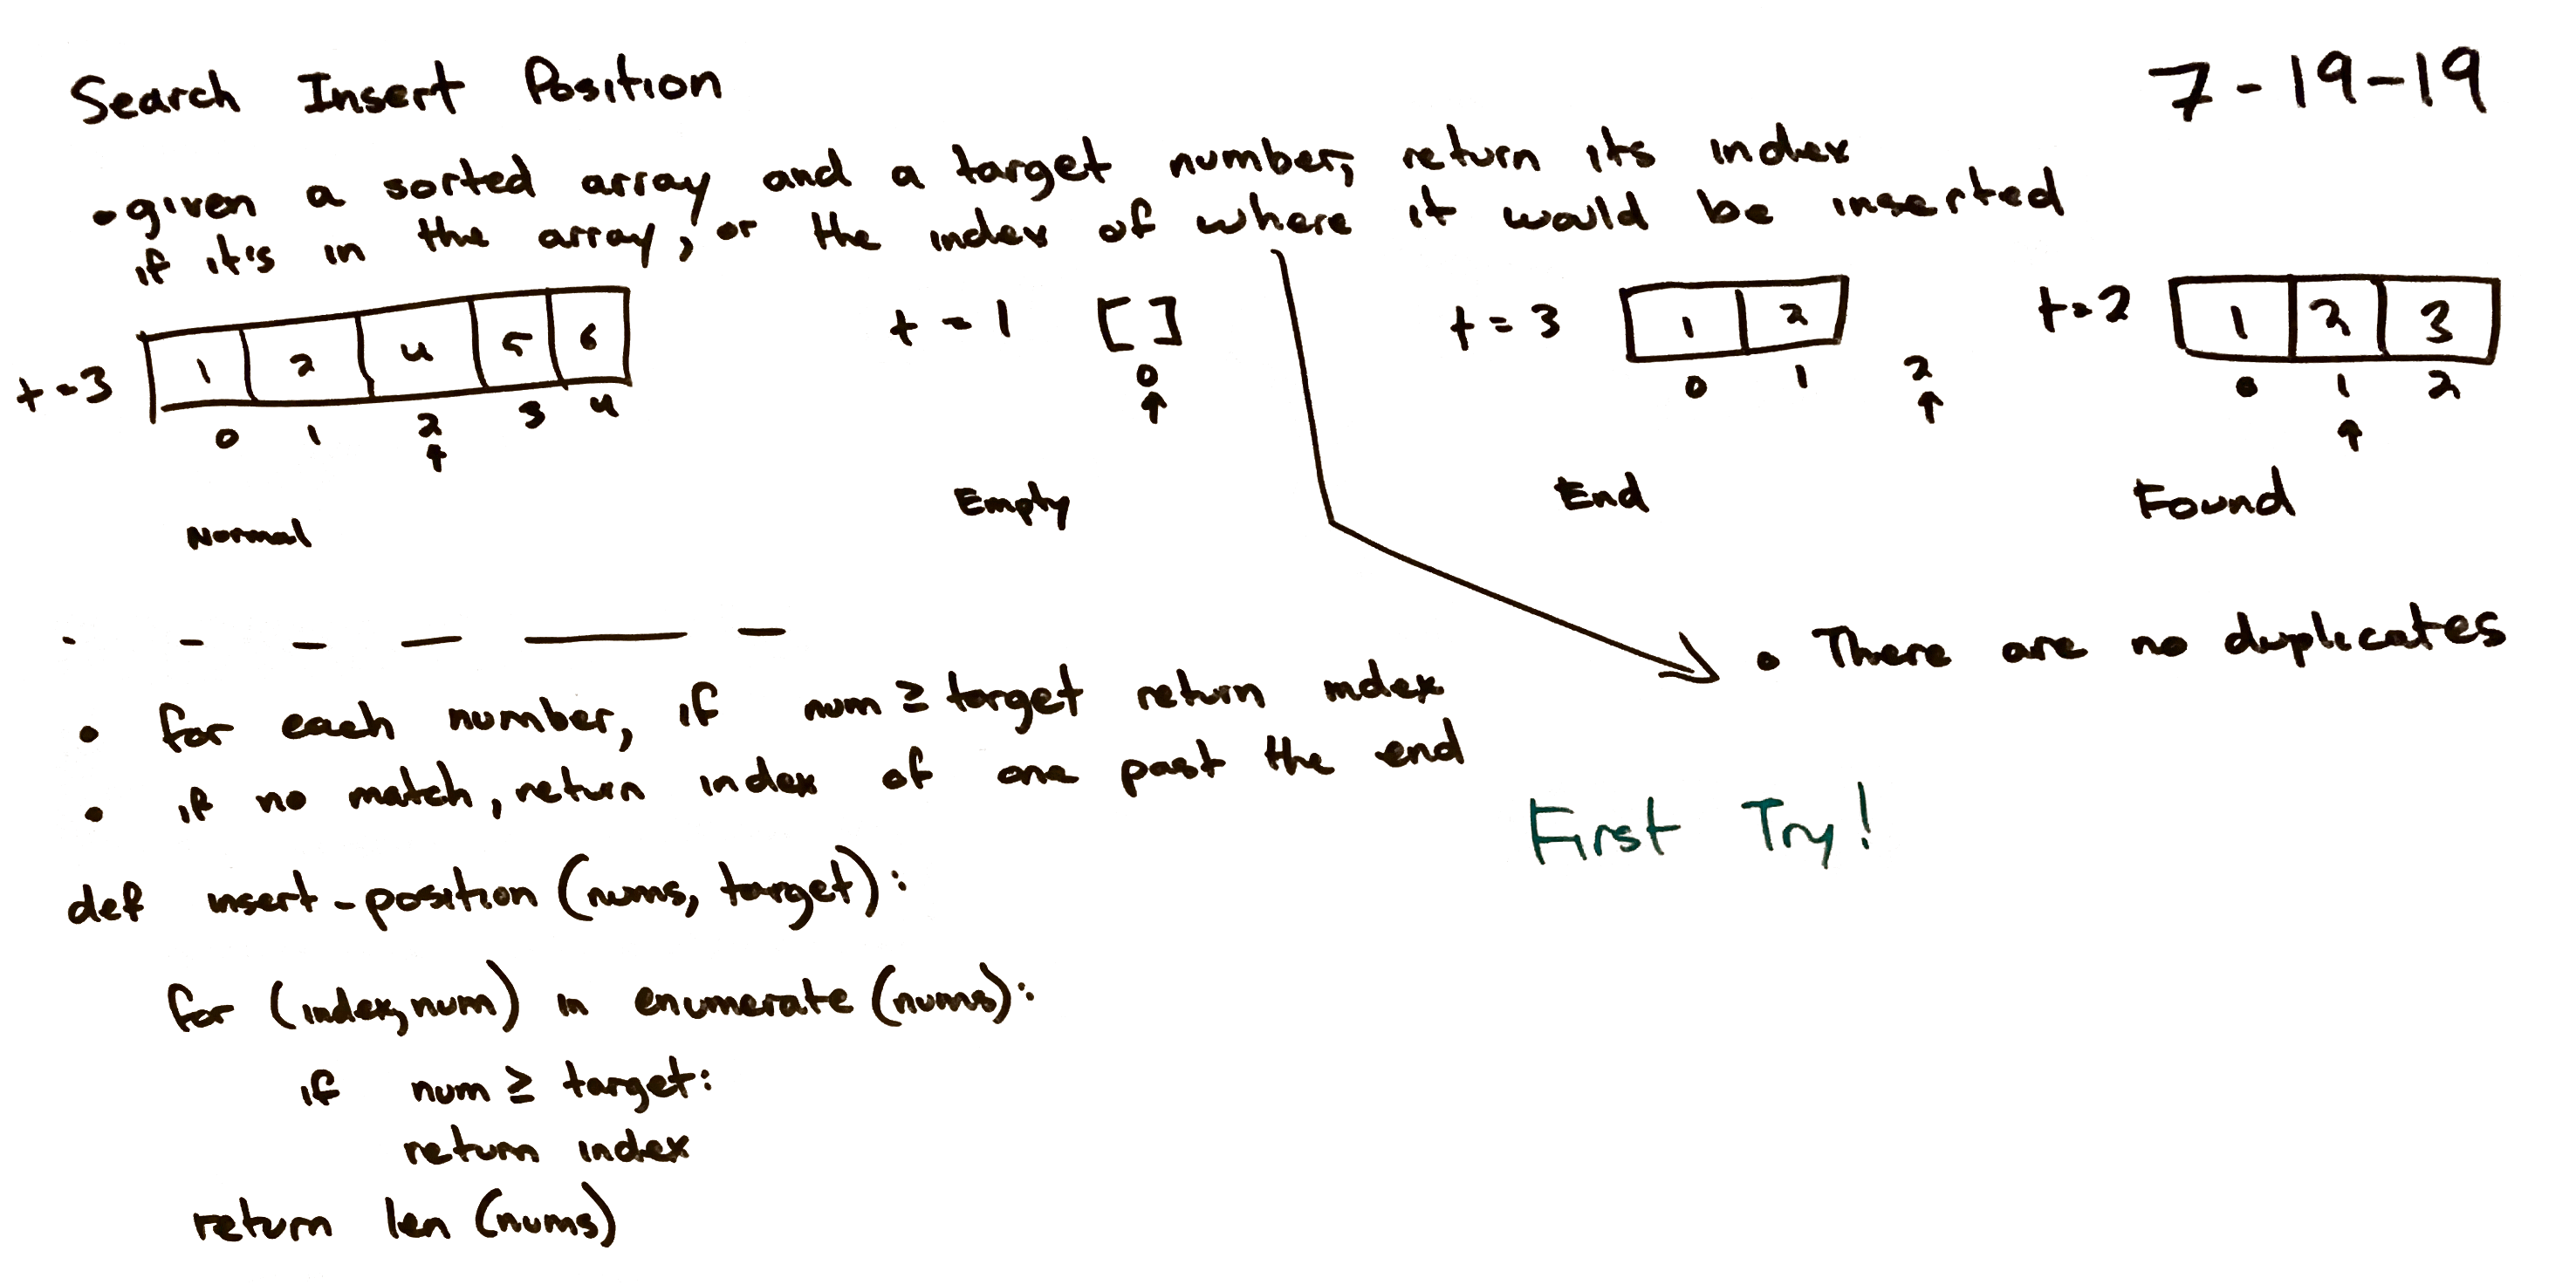 Search Insert Position
7-19-19
• given a sorted array and a target number, return its index
if it's in the array, or the index of where it would be inserted
t=3 1 2 4 5 6
0 1 2 3 4
↑
Normal
t=1 []
0
↑
Empty
t=3 1 2
0 1 2
↑
End
t=2 1 2 3
0 1 2
↑
Found
• There are no duplicates
• for each number, if num ≥ target return index
• if no match, return index of one past the end
First Try!
def insert-position (nums, target):
for (index, num) in enumerate (nums):
if num ≥ target:
return index
return len (nums)